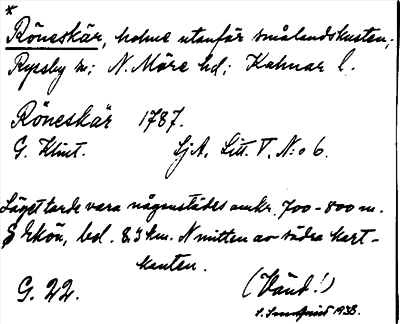 *
Röneskär, holme utanför smålandskusten;
Ryssby sn; N. Möre hd; Kalmar l.
Röneskär 1787.
G. Klint. SjA. Litt. V. N:o 6.
Läget torde vara någonstädes omkr. 700-800 m.
S Ekön, bel. 8.3 km. N mitten av södra kart-
kanten.
G. 22. (Vänd!)
1938.